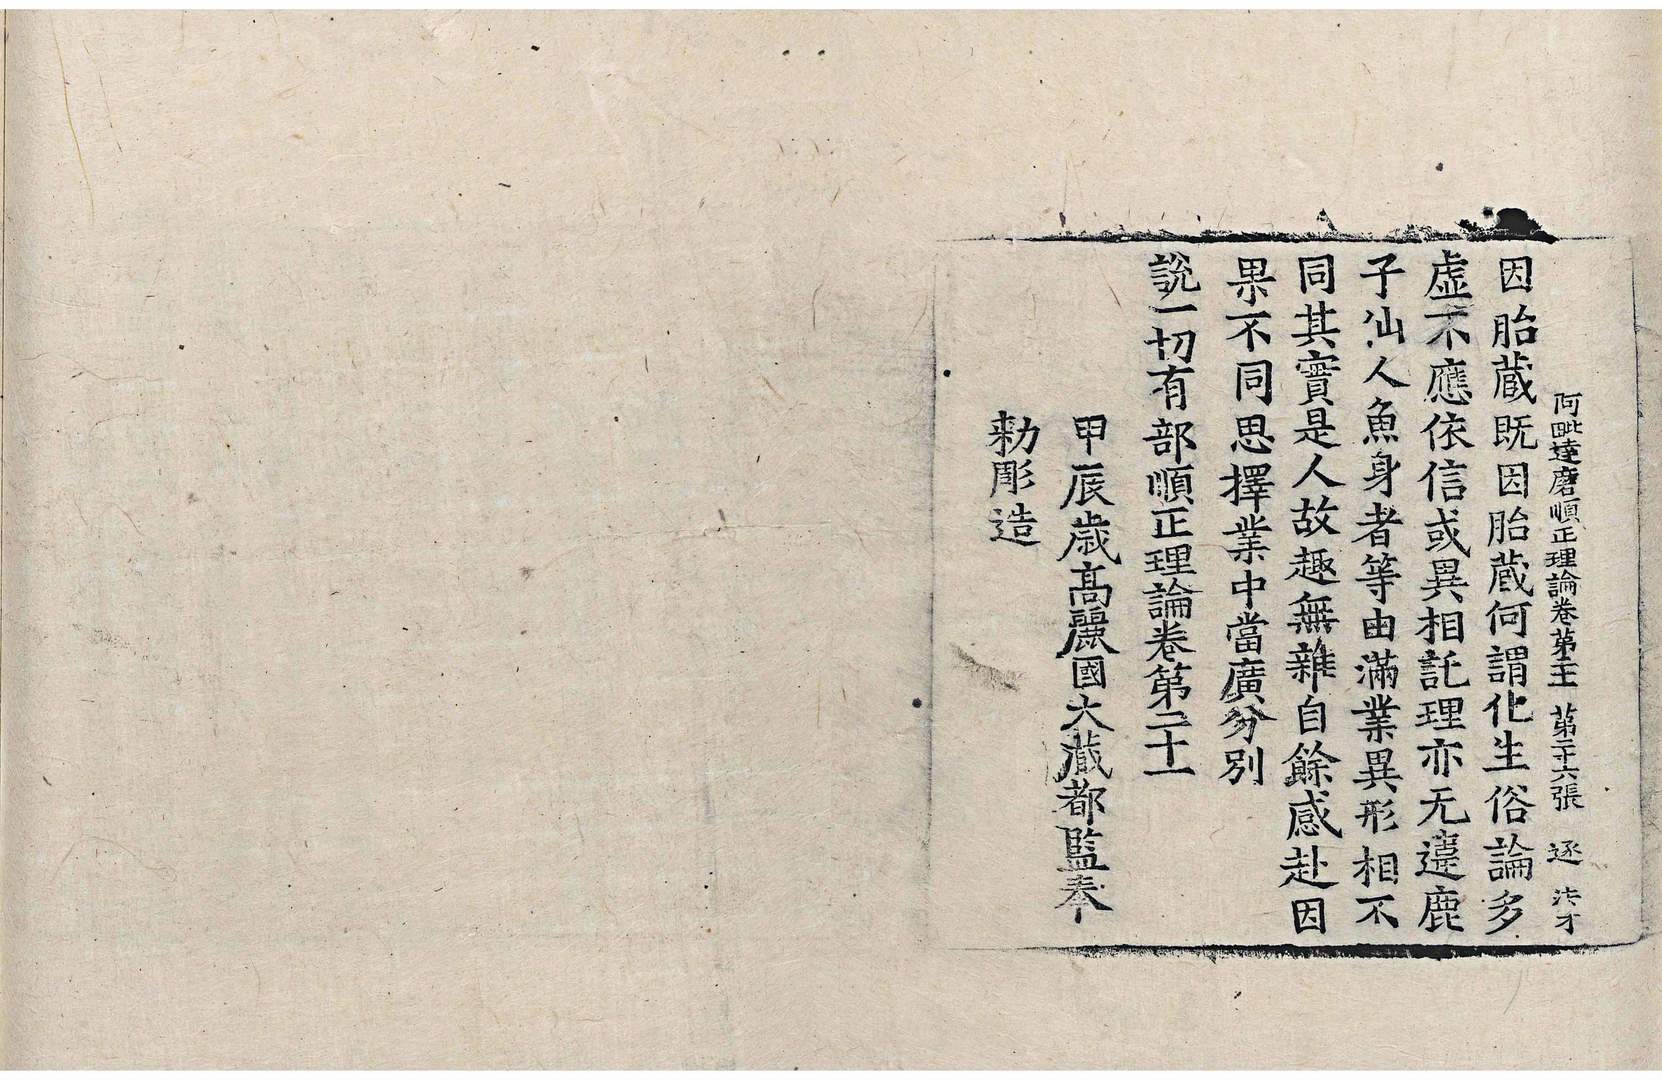 阿毗達磨順正理論卷第二十一 第二十六張 逐 法才
因胎蔵既因胎蔵何謂化生俗論多
虛不應依信或異相託理亦无違鹿
子仙人魚身者等由滿業異形相不
同其實是人故趣無雜自餘感赴因
果不同思擇業中當廣分別
說一切有部順正理論卷第二十一
甲辰歳髙麗國大蔵都監奉
勅彫造